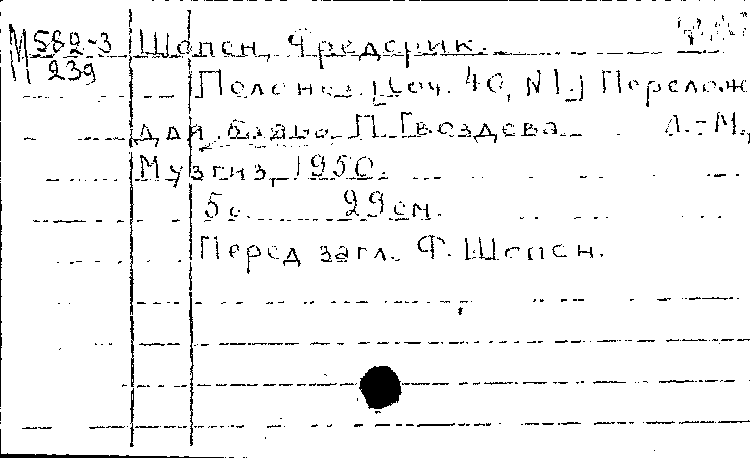 М 582-3 Шопен, Фредерик.
239 Полонез. [Соч. 40, N1.] Перелож
для баяна П. Гвоздева Л.-М.,
Музгиз, 1950.
5 с. 29 см.
Перед загл. Ф. Шопен.